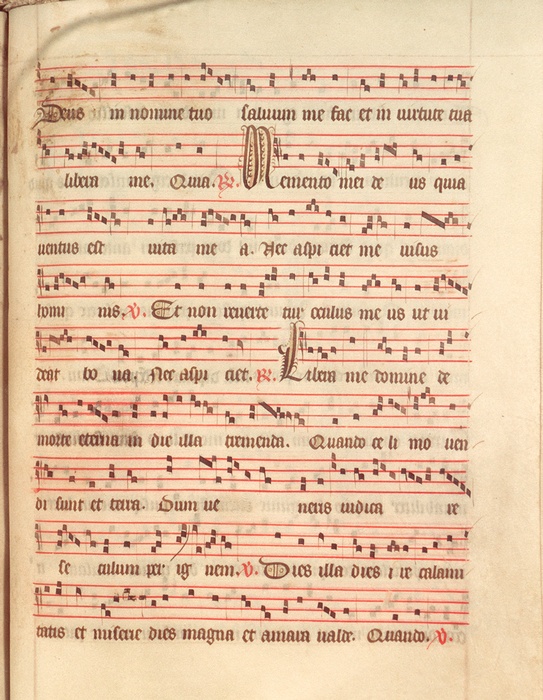 Deus in nomine tuo saluum me fac et in uirtute tua
libera me. Quia. R. Memento mei de us quia
uentus est uita me a. Nec aspi ciet me uisus
homi nis. V. Et non reuerte tur oculus me us ut ui
deat bo na. Nec aspi ciet. R. Libera me domine de
morte eterna in die illa tremenda. Quando ce li mo uen
di sunt et terra. Dum ue neris iudica re
se culum per ig nem. V. Dies illa dies i re calami
tatis et miserie dies magna et amara ualde. Quando. V.